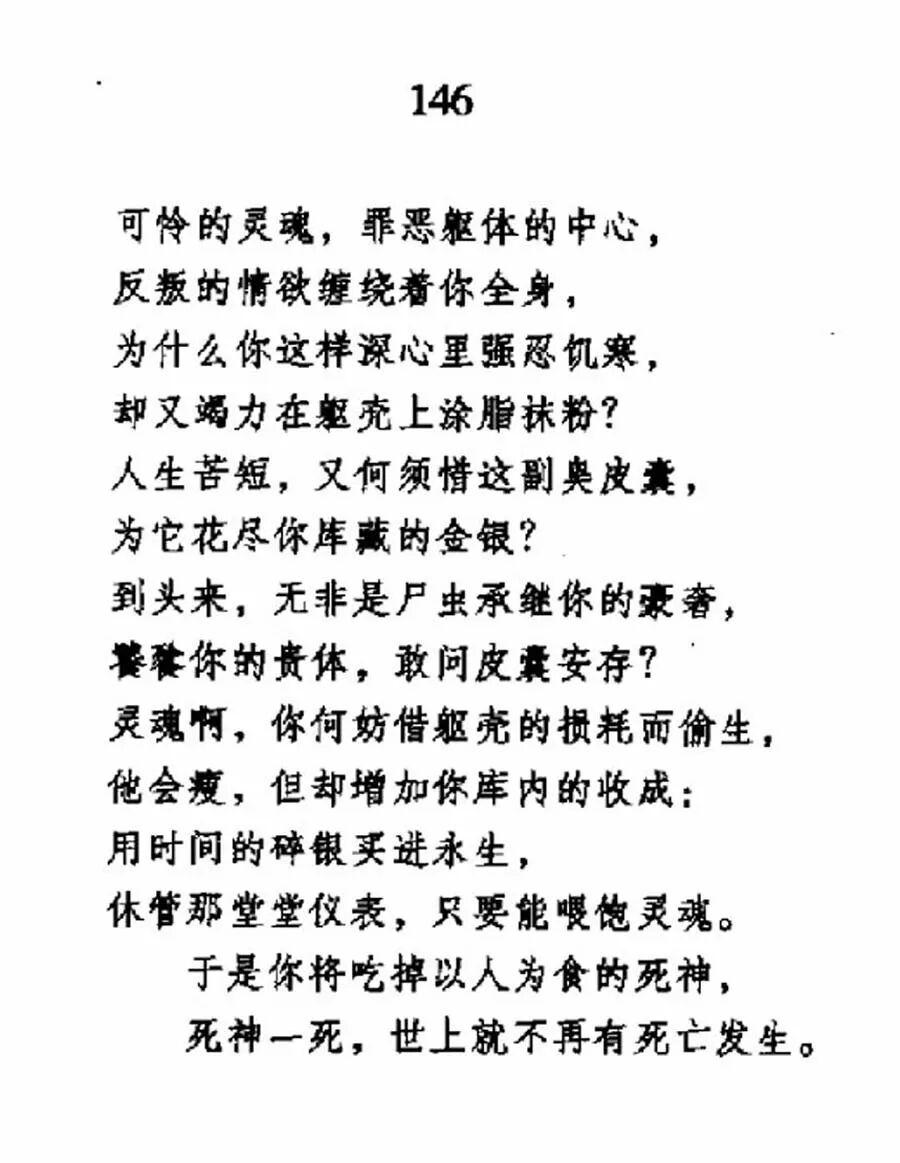 146
可怜的灵魂，罪恶躯体的中心，
反叛的情欲缠绕着你全身，
为什么你这样深心里强忍饥寒，
却又竭力在躯壳上涂脂抹粉？
人生苦短，又何须惜这副臭皮囊，
为它花尽你库藏的金银？
到头来，无非是尸虫承继你的豪奢，
饕餮你的贵体，敢问皮囊安存？
灵魂啊，你何妨借躯壳的损耗而偷生，
他会瘦，但却增加你库内的收成：
用时间的碎银买进永生，
休管那堂堂仪表，只要能喂饱灵魂。
于是你将吃掉以人为食的死神，
死神一死，世上就不再有死亡发生。